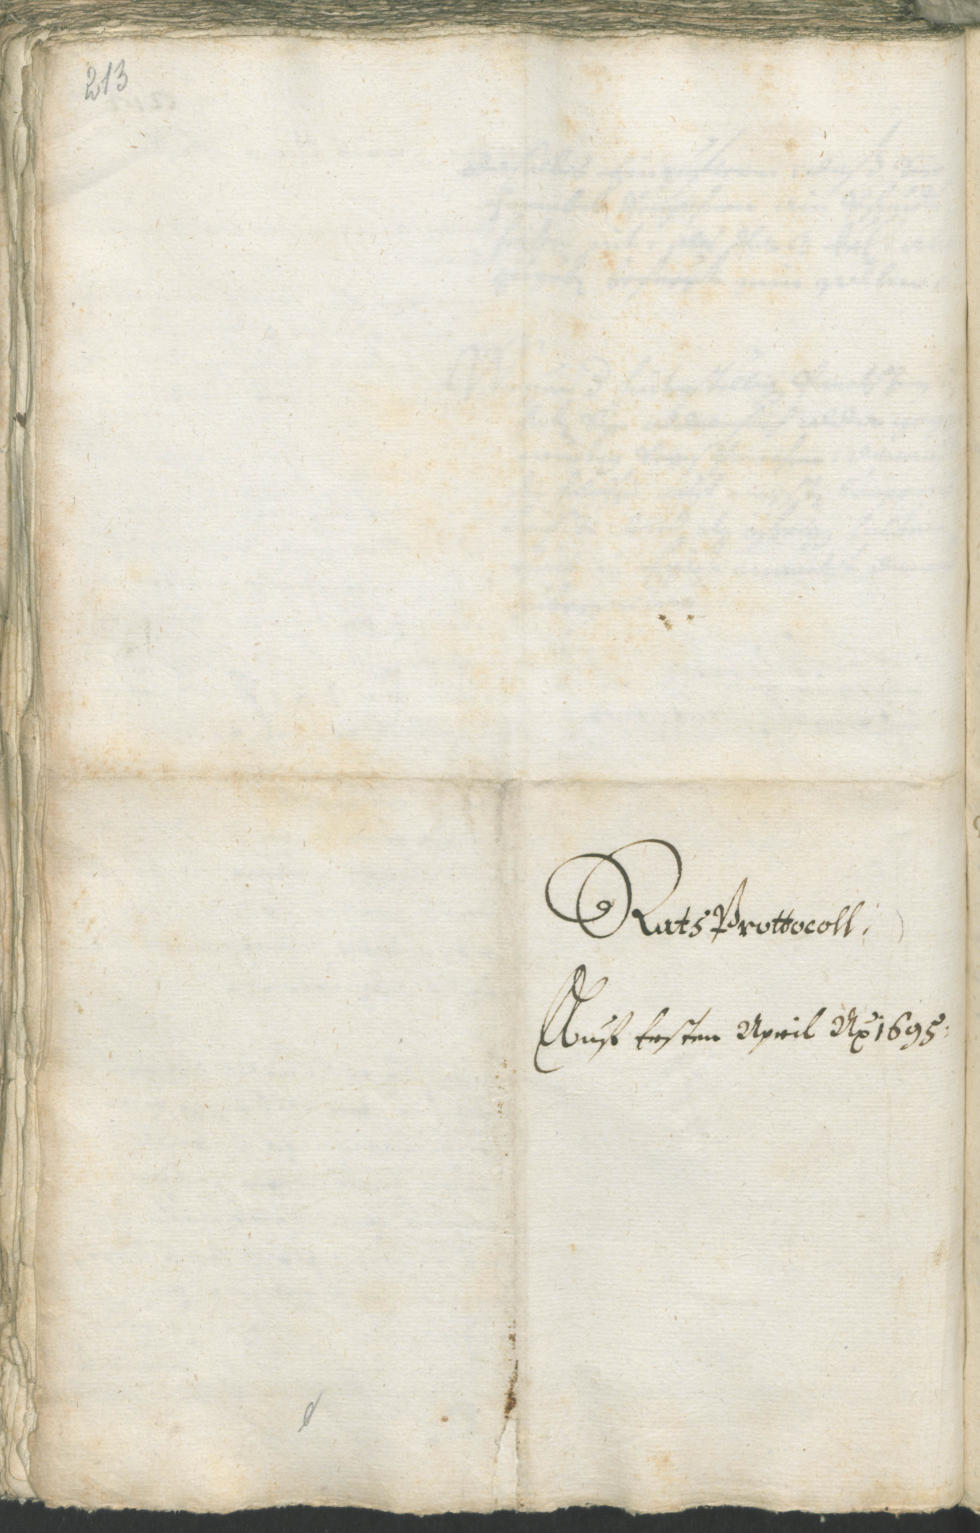 213
Rats Prottocoll.
Auß ersten April Aō 1695.